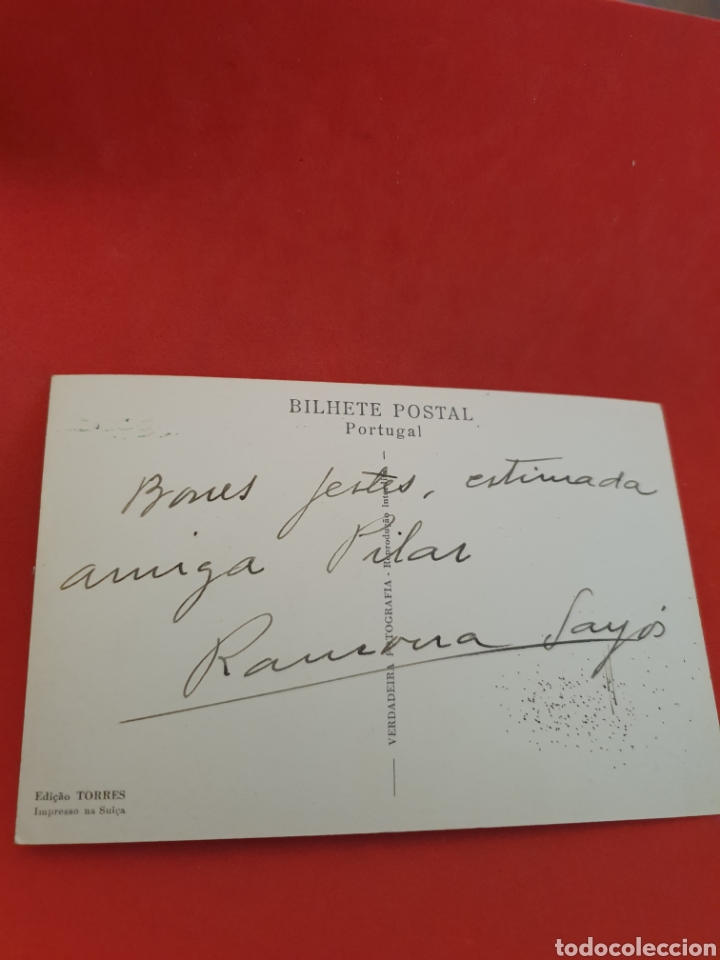 BILHETE POSTAL
Portugal
Bones festes, estimada
amiga Pilar
Ramona Sayós
VERDADEIRA FOTOGRAFIA - Reprodução
Edição TORRES
Impresso na Suiça
todocoleccion